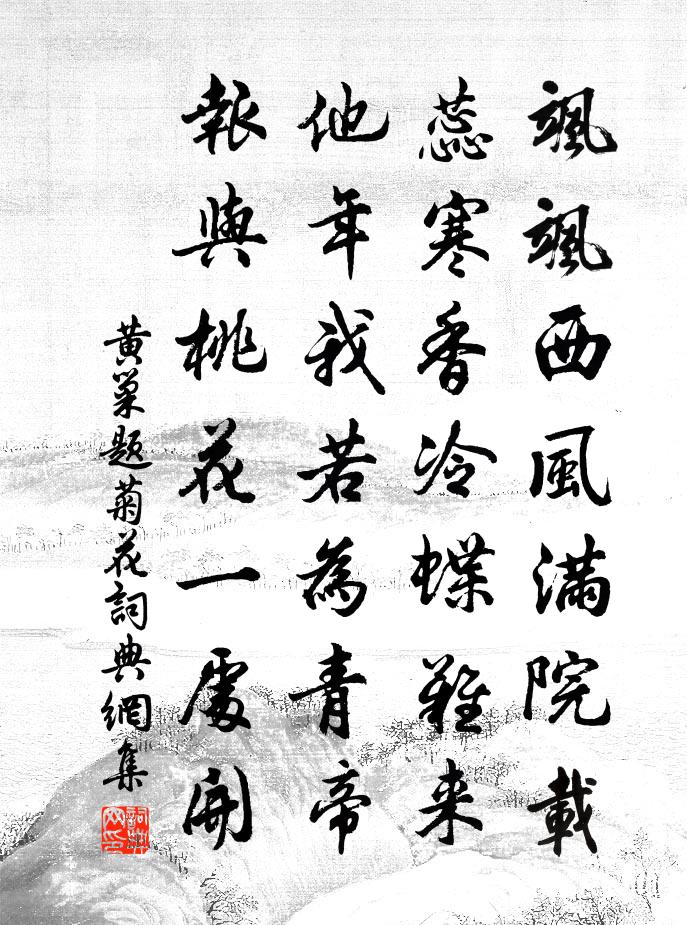 颯颯西風滿院載
蕊寒香冷蝶難来
他年我若為青帝
報與桃花一處開
黃巢題菊花詞典網集
詞典网印